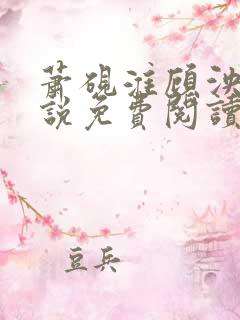 蕭硯淮顧泱
說免費閱讀
豆兵